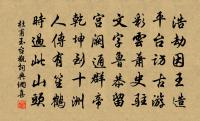 浩劫因王造
平台訪古遊
彩雲蕭史駐
文字魯恭留
宮闕通群帝
乾坤到十洲
人傳有笙鶴
時過此山頭
杜甫玉台觀詞典網書